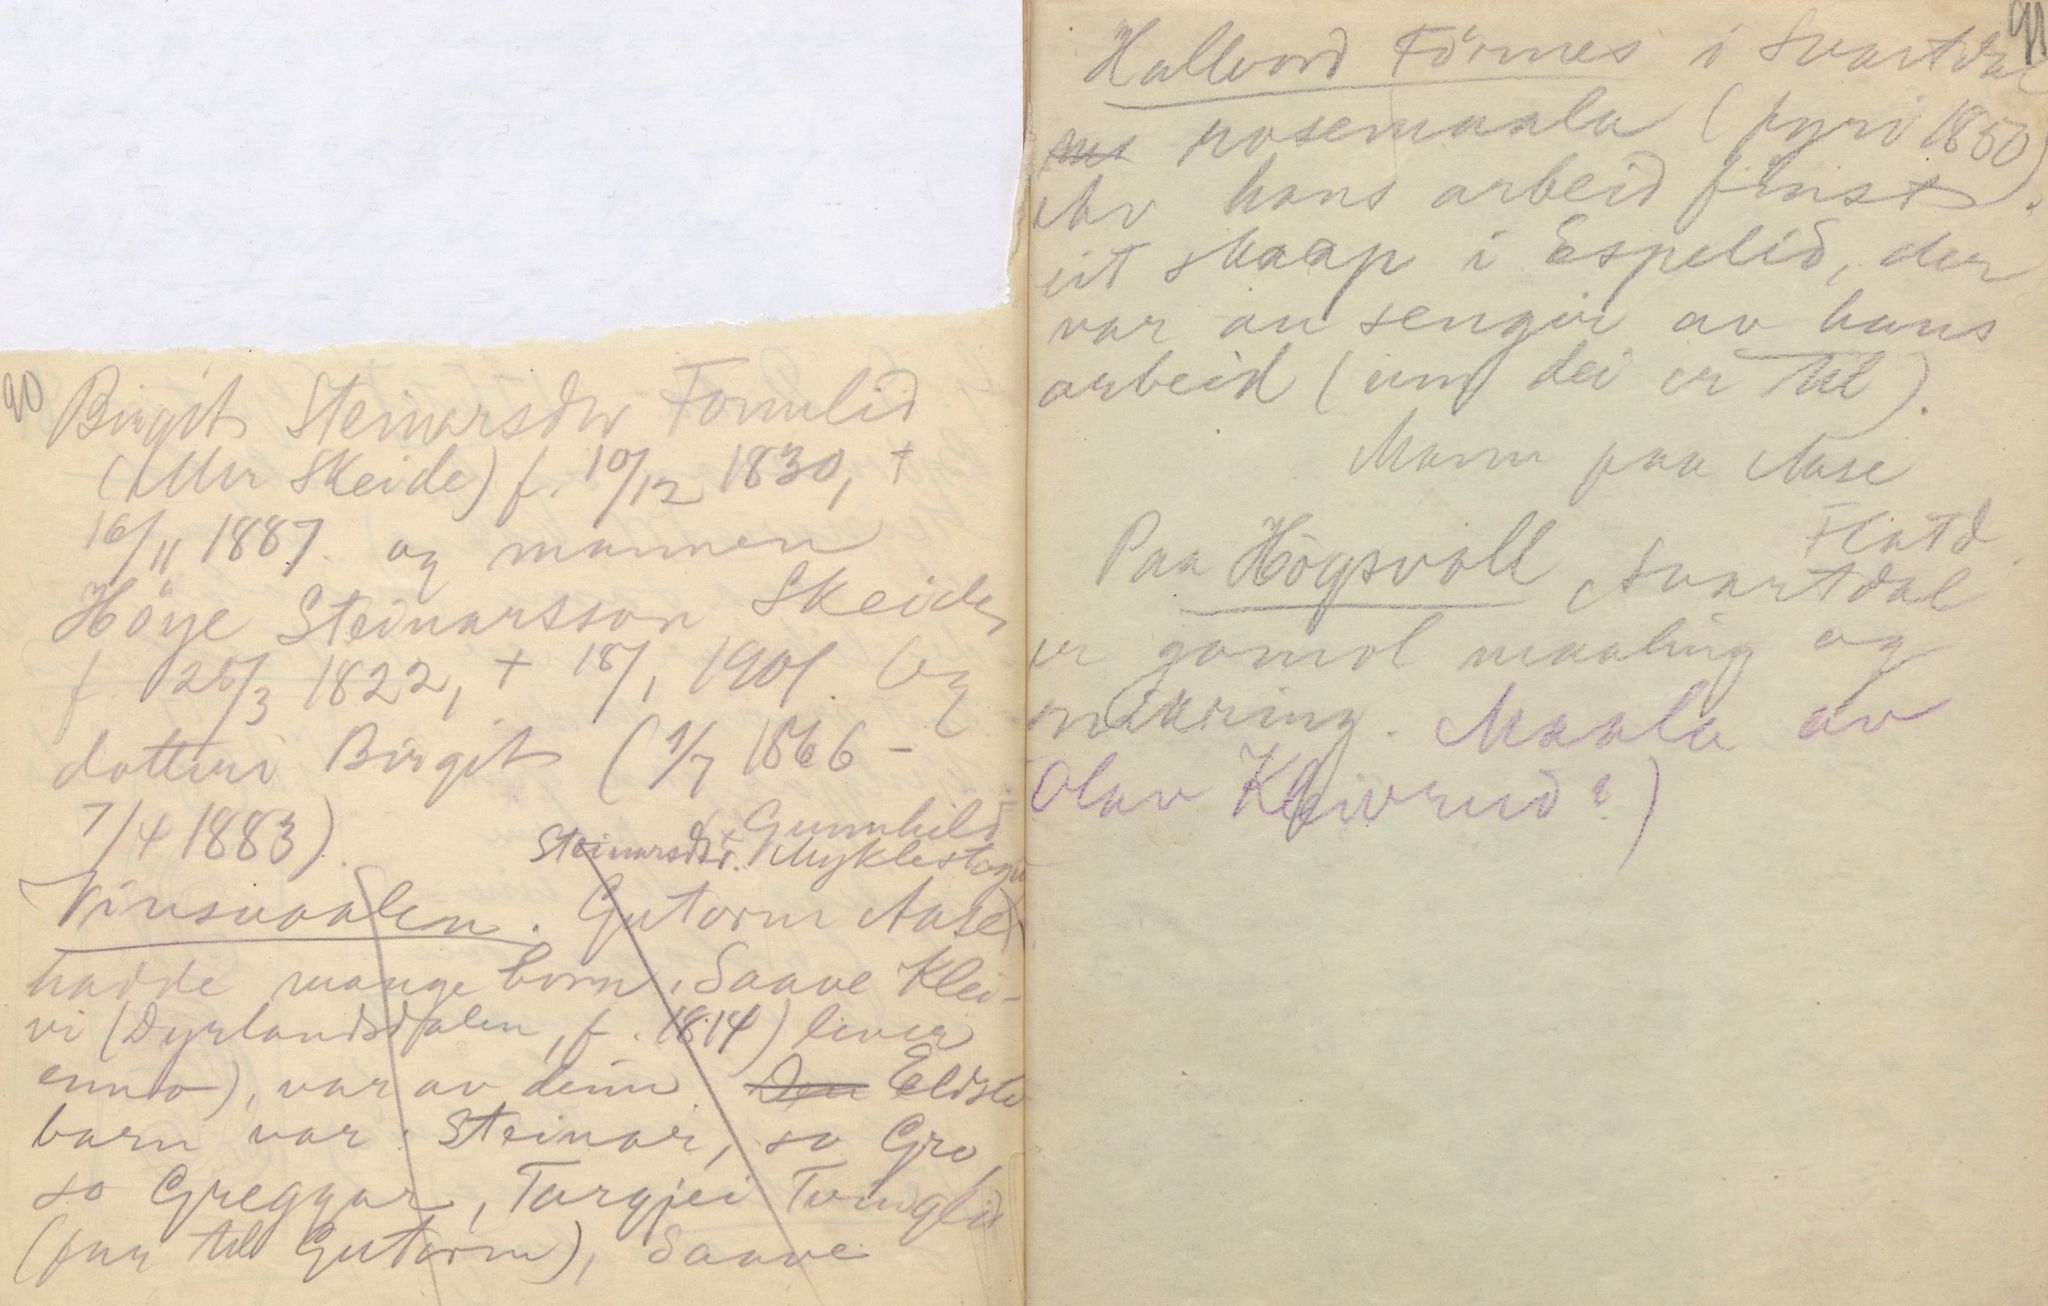 90
Birgit Steinarsdtr Formlid
(Uller Skeide) f. 10/12 1830, +
16/11 1887. og mannen
Höye Steinarsson Skeide
f. 25/3 1822, + 18/1 1901. Og
dotteri Birgit (1/7 1866 -
7/4 1883).
(Gunnhild
Steinarsdtr. Myklestogu
Vinsvaalen. Gutorm Aase)
hadde mange born, Saave Klei-
vi (Dyrlandsdalen, f. 1814) lever
enno), var av deim. Den Eldste
barn var: Steinar, so Gro,
so Greggar, Targjei Tvinglid
(far til Gutorm), Saave
91
Hallvord Förnes i Svartdal
rosemaala (fyri 1850)
Av hans arbeid finst.
eit skaap i Espelid, der
var au sengir av hans
arbeid (um dei er til).
Mann paa Aase
Flatd.
Paa Högsvoll Svartdal
er gamol maaling og
snikring. Maala av
Olav Kleivrud?)